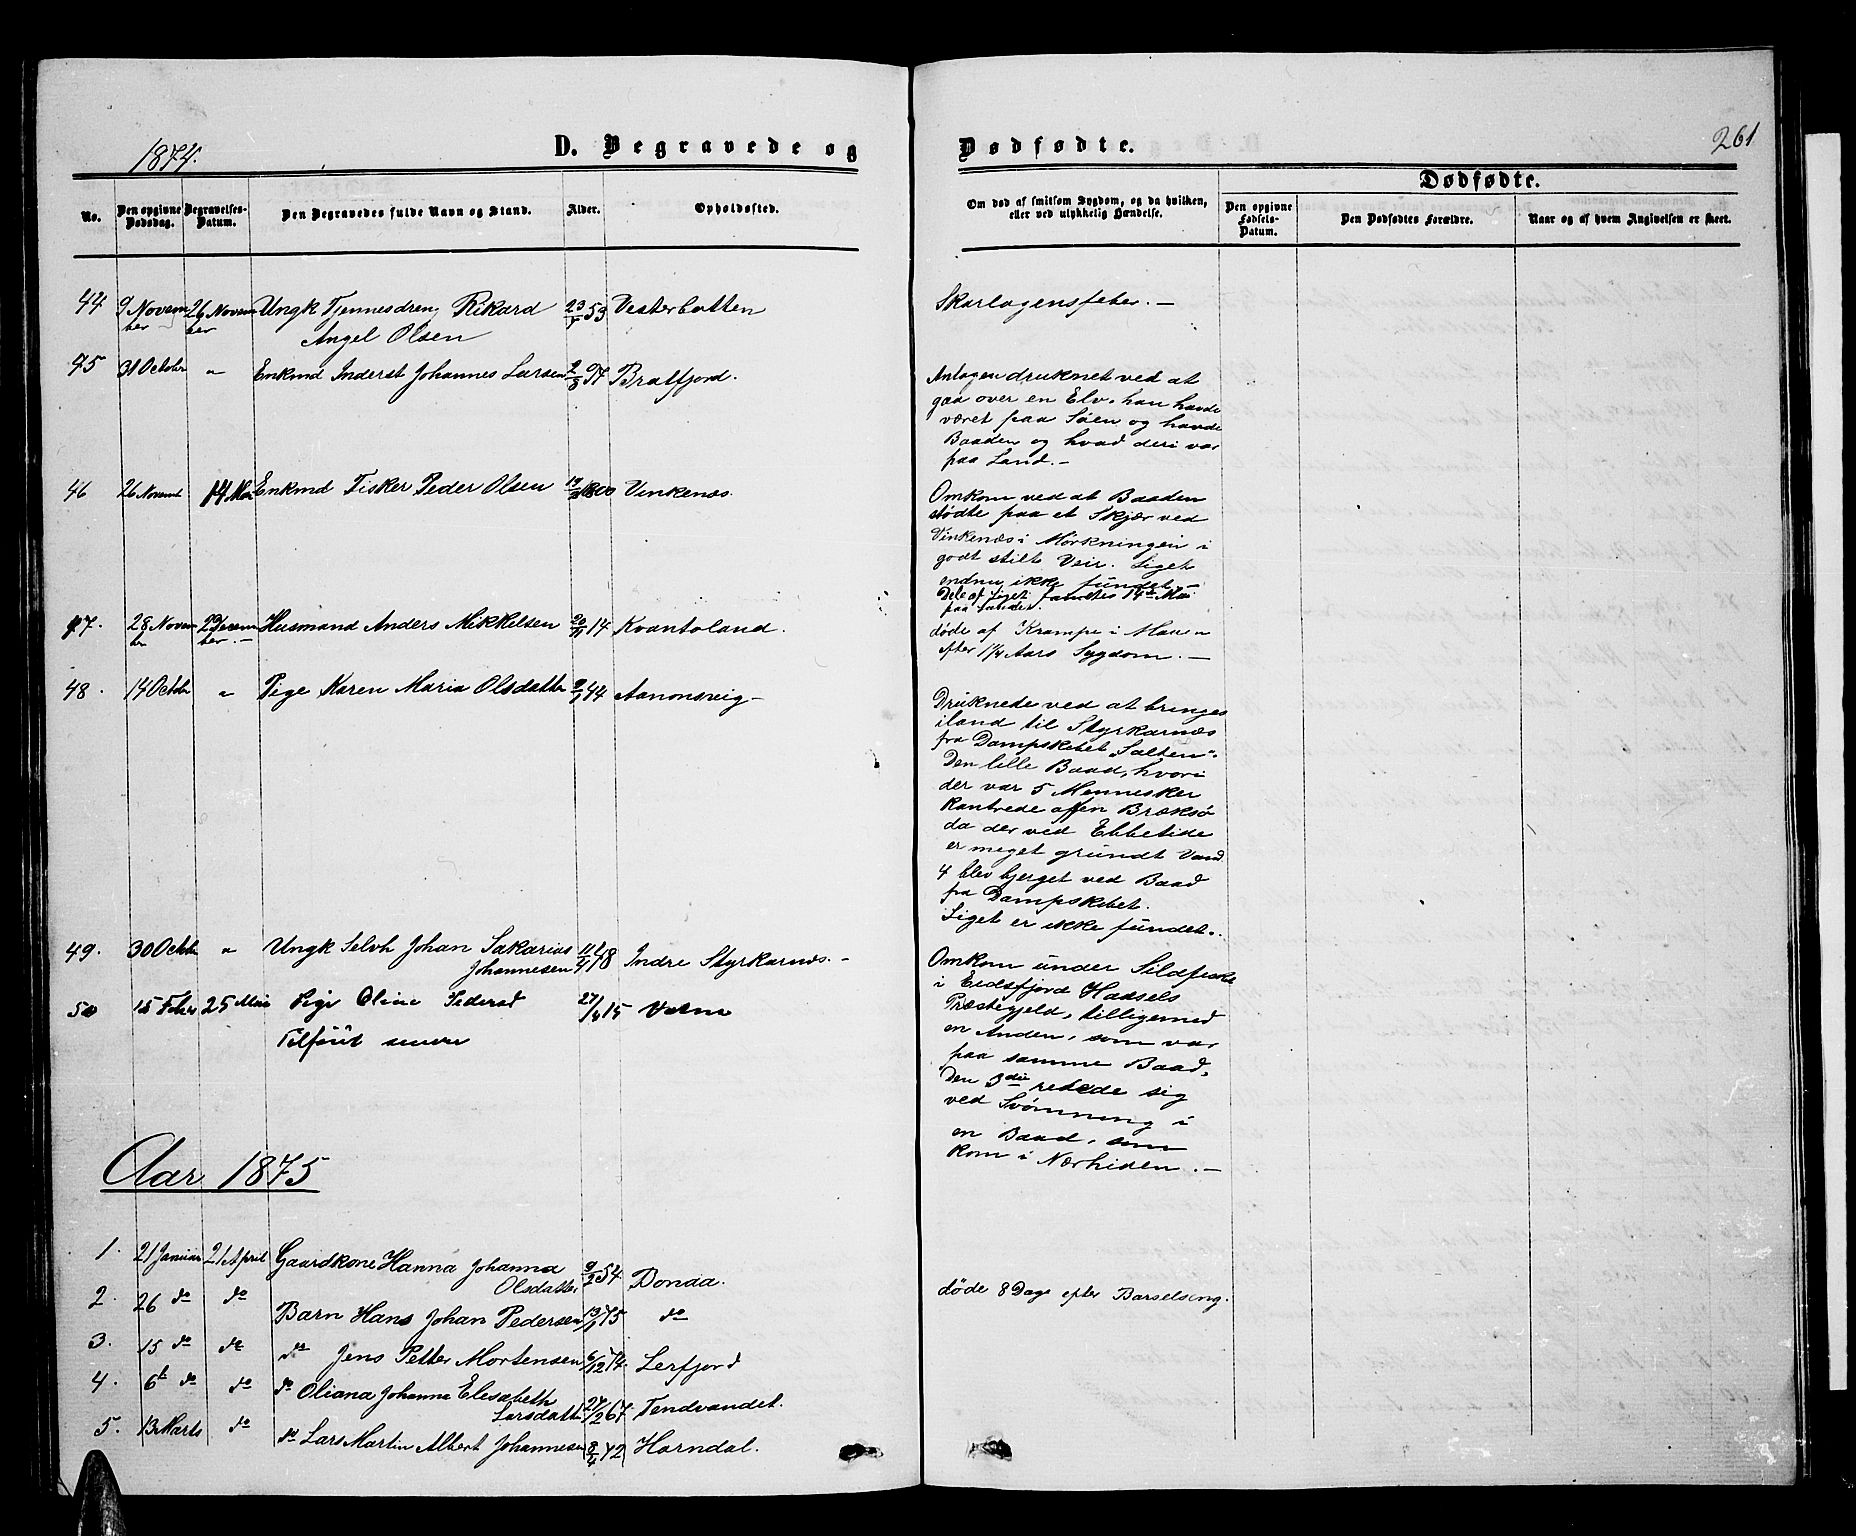 1874.
D. Begravede og
Dødfødte.
261
No.
Den opgivne Dødsdag.
Begravelses-Datum.
Den Begravedes fulde Navn og Stand.
Alder.
Opholdssted.
Om død af smitsom Sygdom, og da hvilken, eller ved ulykkelig Hændelse.
Dødfødte.
Den opgivne Fødsels-Datum.
Den Dødfødtes Forældre.
Naar og af hvem Angivelsen er skeet.
44 9 November 26 November Ungk Tjennesdreng Rikard 23/ 53 Vesterbotten
Angel Olsen
Skarlagensfeber. -
45 31 October " Enkmd Inderst Johannes Larsen 2/8 97 Bratfjord.
Antagen druknet ved at
gaa over en Elv, han havde
været paa Søen og havde
Baaden og hvad deri var
paa Land. -
46 26 Novemb 14 Mai Enkmd Fisker Peder Olsen 1800 Vinkenæs.
Omkom ved at Baaden
stødte paa et Skjær ved
Vinkenæs i Mørkningen i
godt stilt Veir. Liget
endnu ikke fundet. -
Dele af Liget fandtes 14de Mai
paa Landet.
47. 28 November 29 December. - Husmand Anders Mikkelsen 20/11 14 Kvantoland.
døde af Krampe i Maven
efter 1 1/4 Aars Sygdom. -
48. 14 Octobr " Pige Karen Maria Olsdatter 44 Aanonsveig -
Druknede ved at bringes
iland til Styrkarnæs
fra Dampskibet "Salten".
Den lille Baad, hvori
der var 5 Mennesker
kantrede af en Bræksø
da der ved Ebbetide
er meget grundt Vand
4 blev bjerget ved Baad
fra Dampskibet.
Liget er ikke fundet.
49. 30 Octbr " Ungk Selvh Johan Sakarias 11/4 48 Indre Styrkarnæs. -
Johannesen
Omkom under Sildfiske
i Eidsfjord Hadsels
Præstegjeld, tilligemed
en Anden, som var
paa samme Baad,
Den 3die redede sig
ved Svømning i
en Baad, som
kom i Nærheden. -
50 15 Febr 25 Mai Pige Oline Pedersd 27/4 15
Tilføiet senere
Aar 1875
1. 21 Januar 21 April Gaardkone Hanna Johanna 9/2 54 Bonaa.
Olsdatter
døde 8 Dage efter Barselseng.
2. 26 do do Barn Hans Johan Pedersen 13/1 75 do
3. 15 do do do Jens Petter Mortensen 6/12 74. Lerfjord
4. 6t do do do Oliana Johanna Elesabeth
Larsdatter 24/2 67. Tendvandet.
5. 13 Marts do do Lars Martin Albert Johannesen 8/4 72 Horndal.